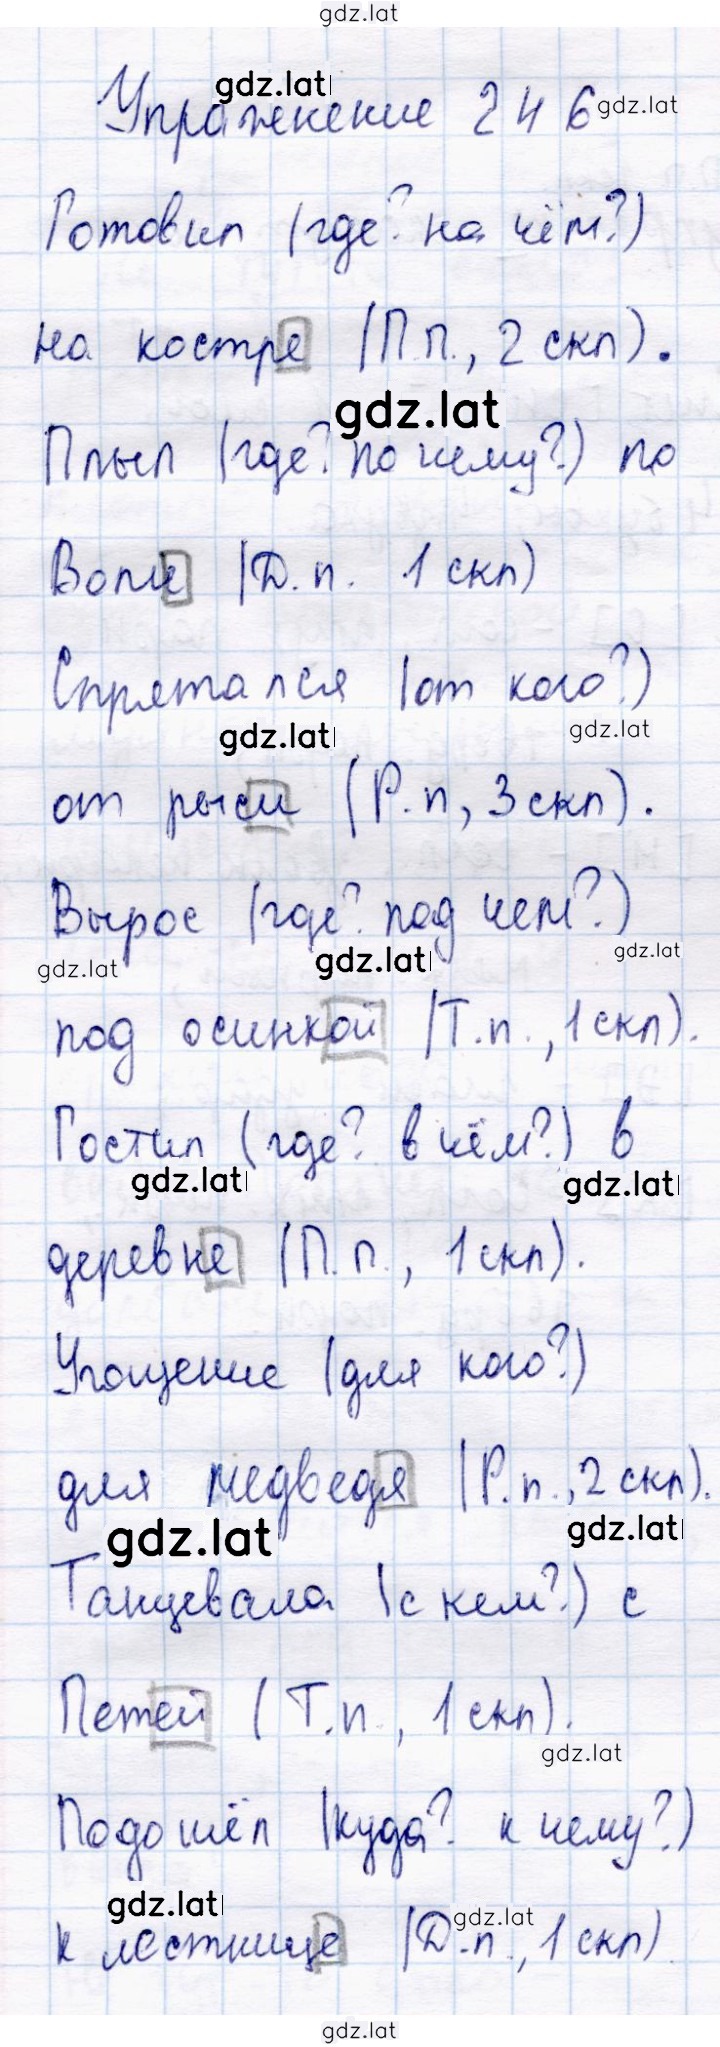 gdz.lat
gdz.lat
Упражнение 246 gdz.lat
Готовил (где? на чём?)
на костре (П.п., 2 скл).
gdz.lat
Плыл (где? по чему?) по
Волге (Д.п. 1 скл)
Спрятался (от кого?)
gdz.lat gdz.lat
от рыси (Р.п, 3 скл).
Вырос (где? под чем?)
gdz.lat gdz.lat gdz.lat
под осинкой (Т.п., 1 скл).
Гостил (где? в чём?) в
gdz.lat gdz.lat
деревне (П.п., 1 скл).
Угощение (для кого?)
для медведя (Р.п., 2 скл).
gdz.lat gdz.lat
Танцевала (с кем?) с
Петей (Т.п., 1 скл).
gdz.lat
Подошёл (куда? к чему?)
gdz.lat gdz.lat
к лестнице (Д.п., 1 скл)
gdz.lat